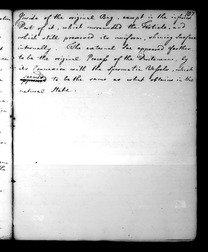 Inside of the original Bag, except in the inferior 187
Part of it, which surrounded the Testicle, and
which still possessed its uniform, shining Surface
internally. The external Sac appeared farther
to be the original Process of the Peritoneum, by
its Connexion with the Spermatic Vessels, which
to be the same as what obtains in the
natural State.